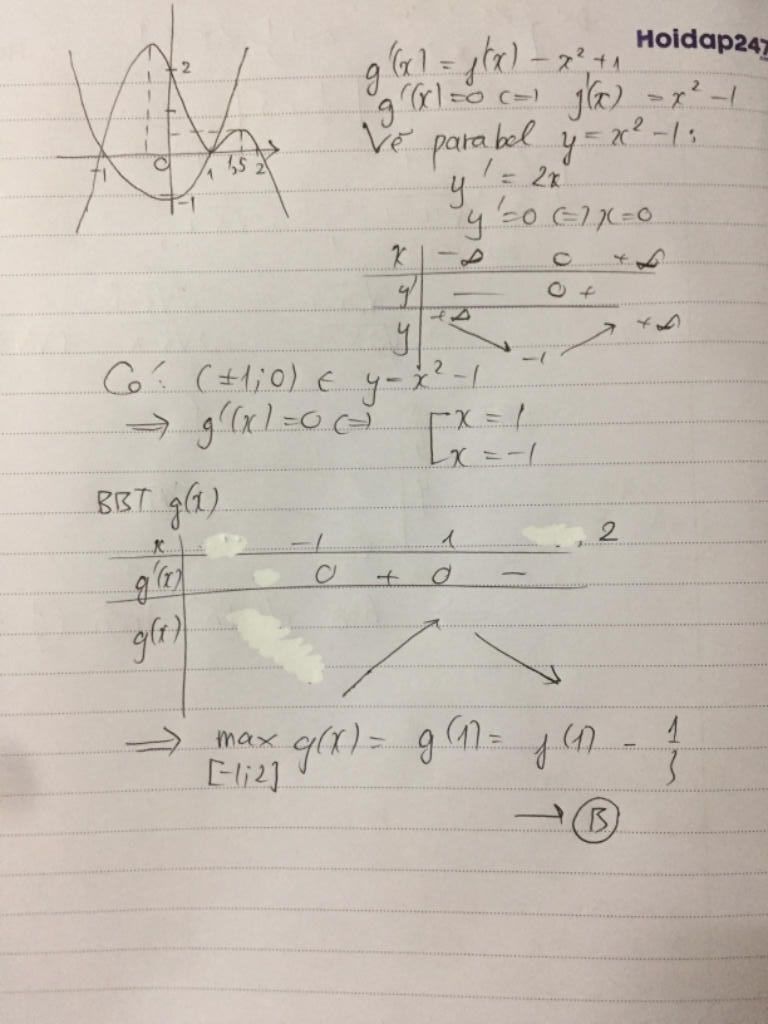 Hoidap247
g'(x) = f'(x) - x² + 1
g'(x) = 0 <=> f'(x) = x² - 1
Vẽ parabol y = x² - 1:
y' = 2x
y' = 0 <=> x = 0
2
-1 0 1 1,5 2
-1
x -∞ 0 +∞
y' - 0 +
y +∞ -1 +∞
Có: (±1;0) ∈ y = x² - 1
=> g'(x) = 0 <=> [x = 1
[x = -1
BBT g(x)
x -1 1 2
g'(x) 0 + 0 -
g(x)
=> max g(x) = g(1) = f(1) - 1/3
[-1;2]
→ B